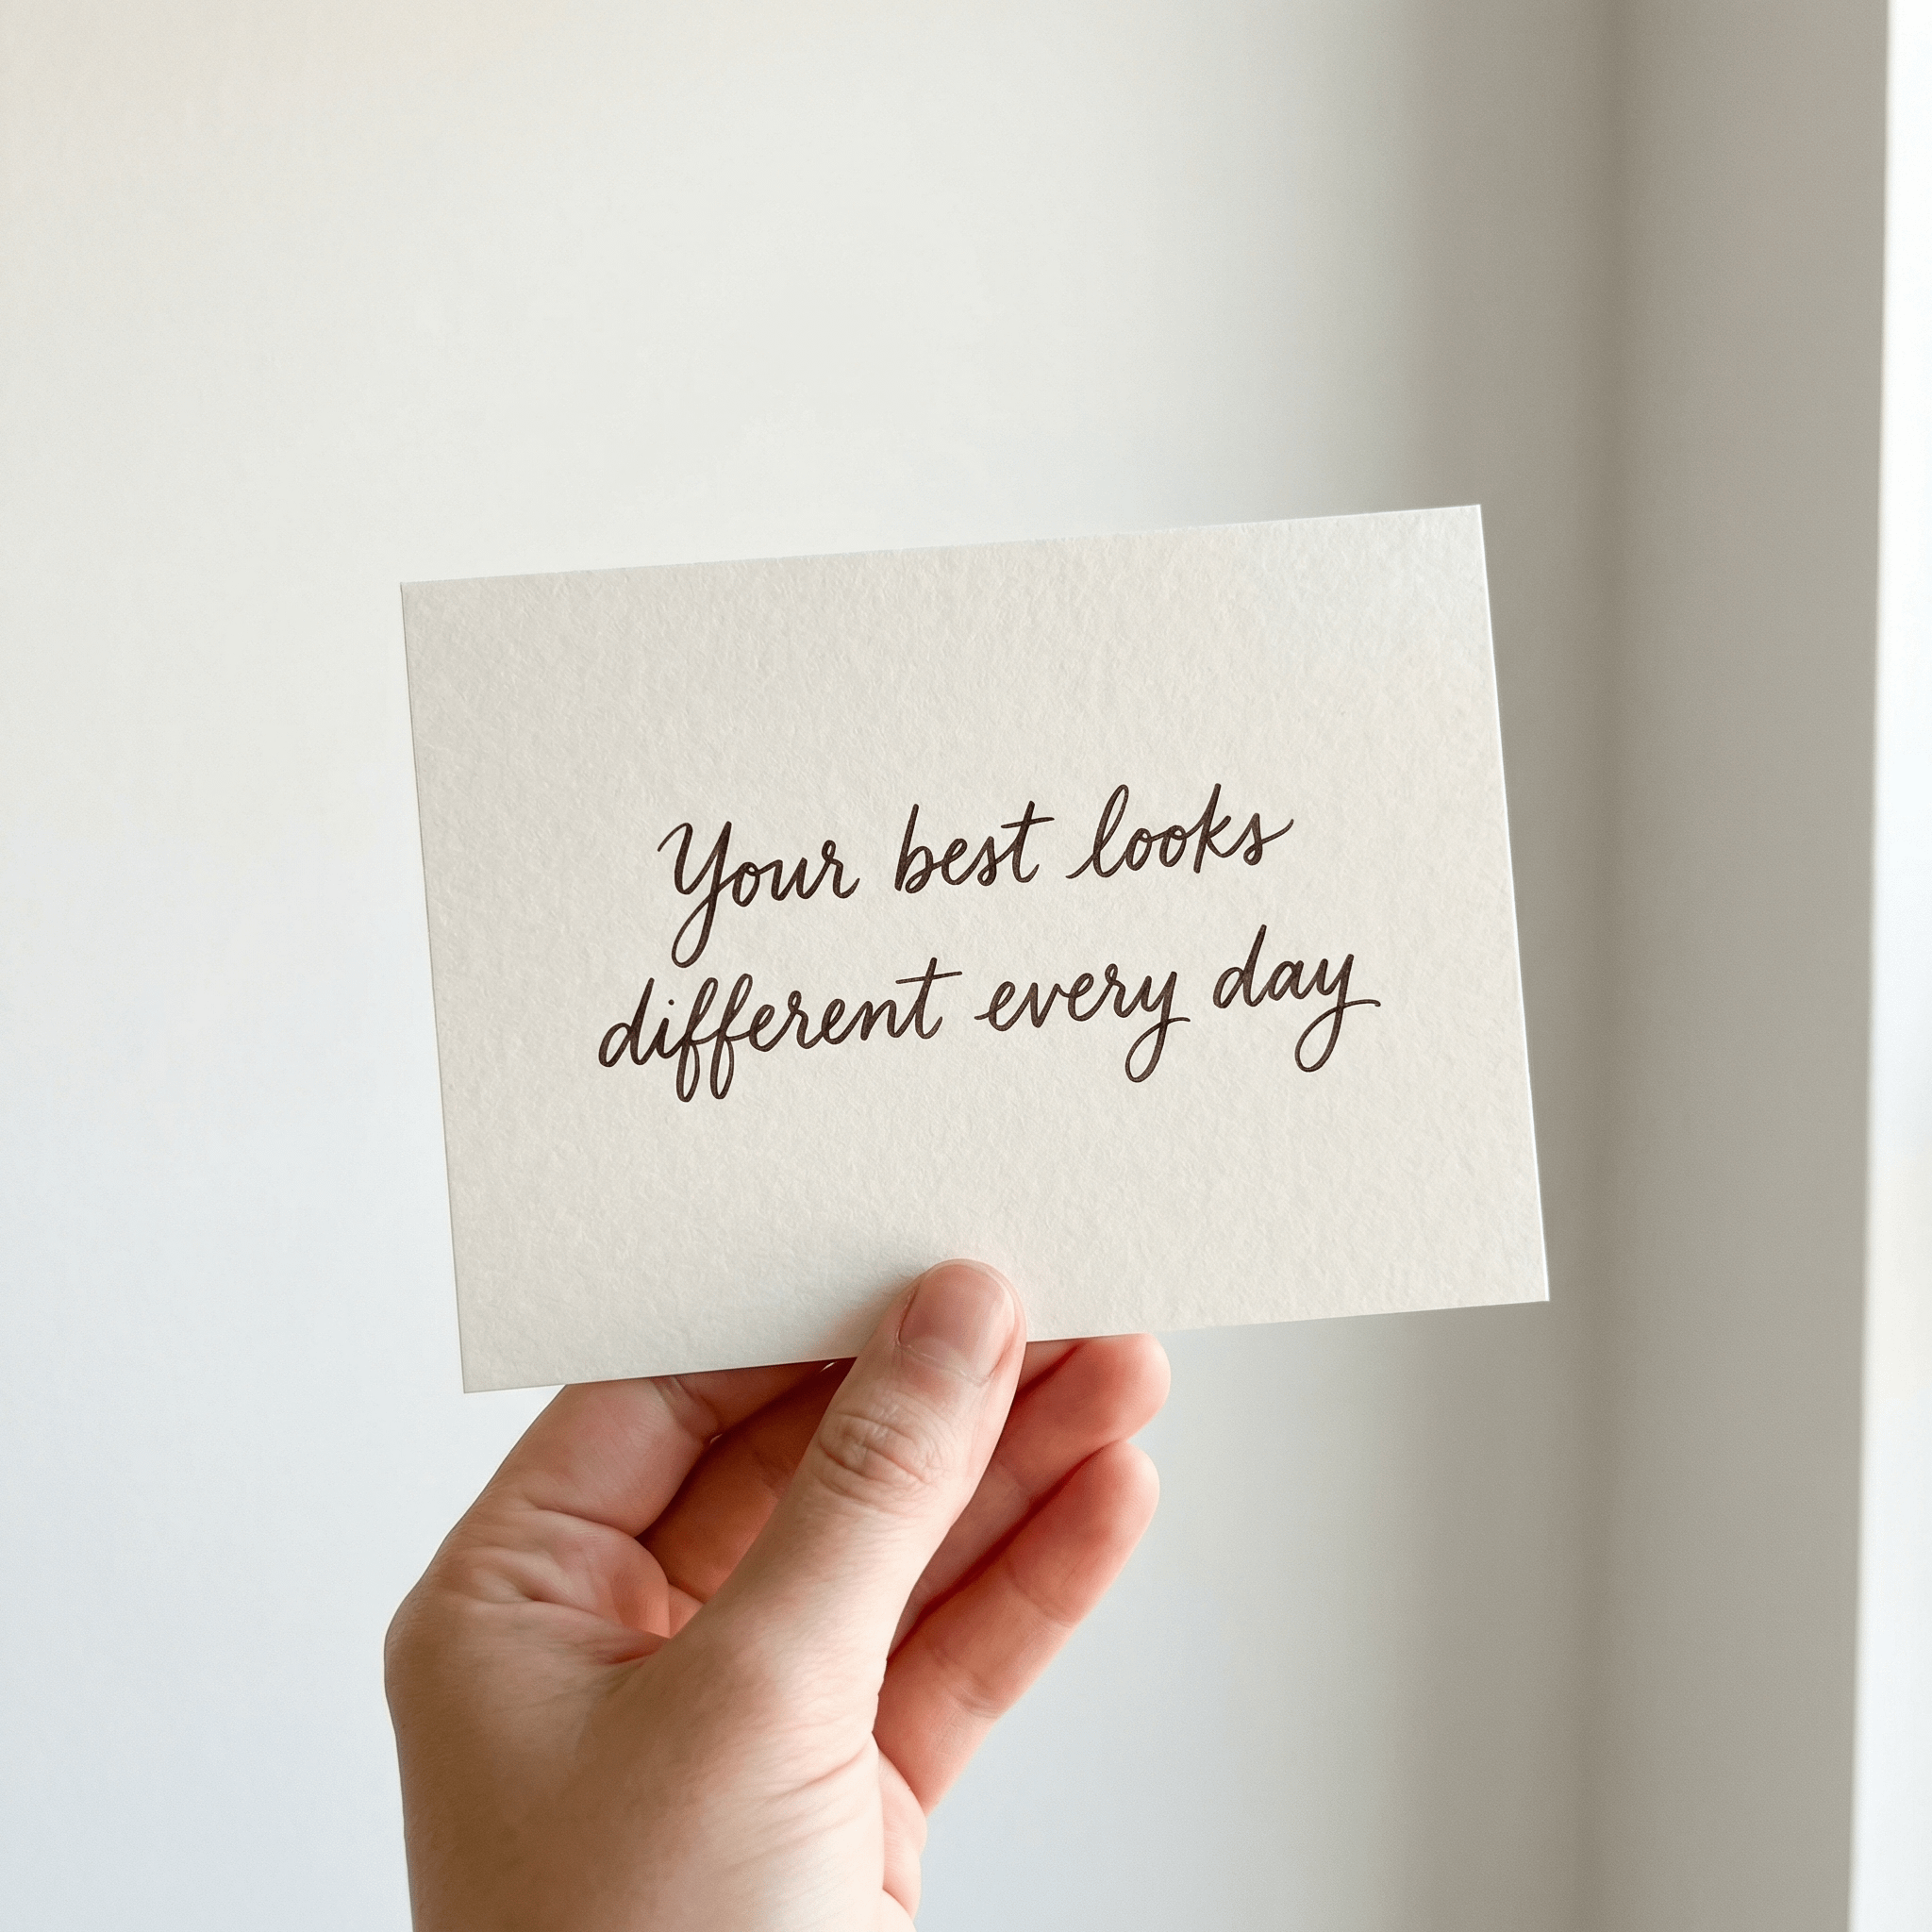 Your best looks
different every day